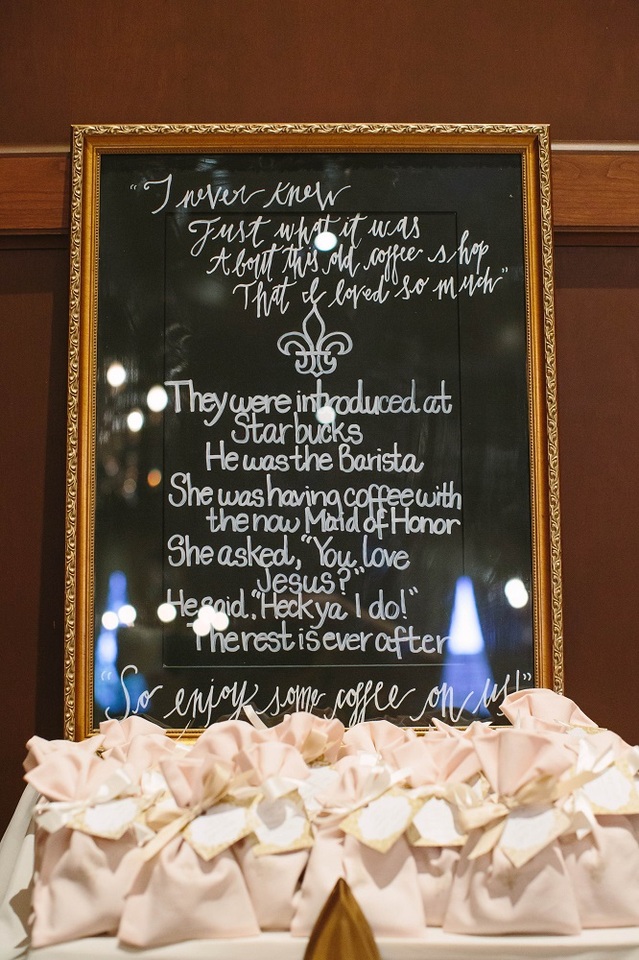 "I never knew
Just what it was
About this old coffee shop
That I loved so much"
They were introduced at
Starbucks
He was the Barista
She was having coffee with
the now Maid of Honor
She asked, "You love
Jesus?"
He said, "Heck ya I do!"
The rest is ever after
"So enjoy some coffee on us!"